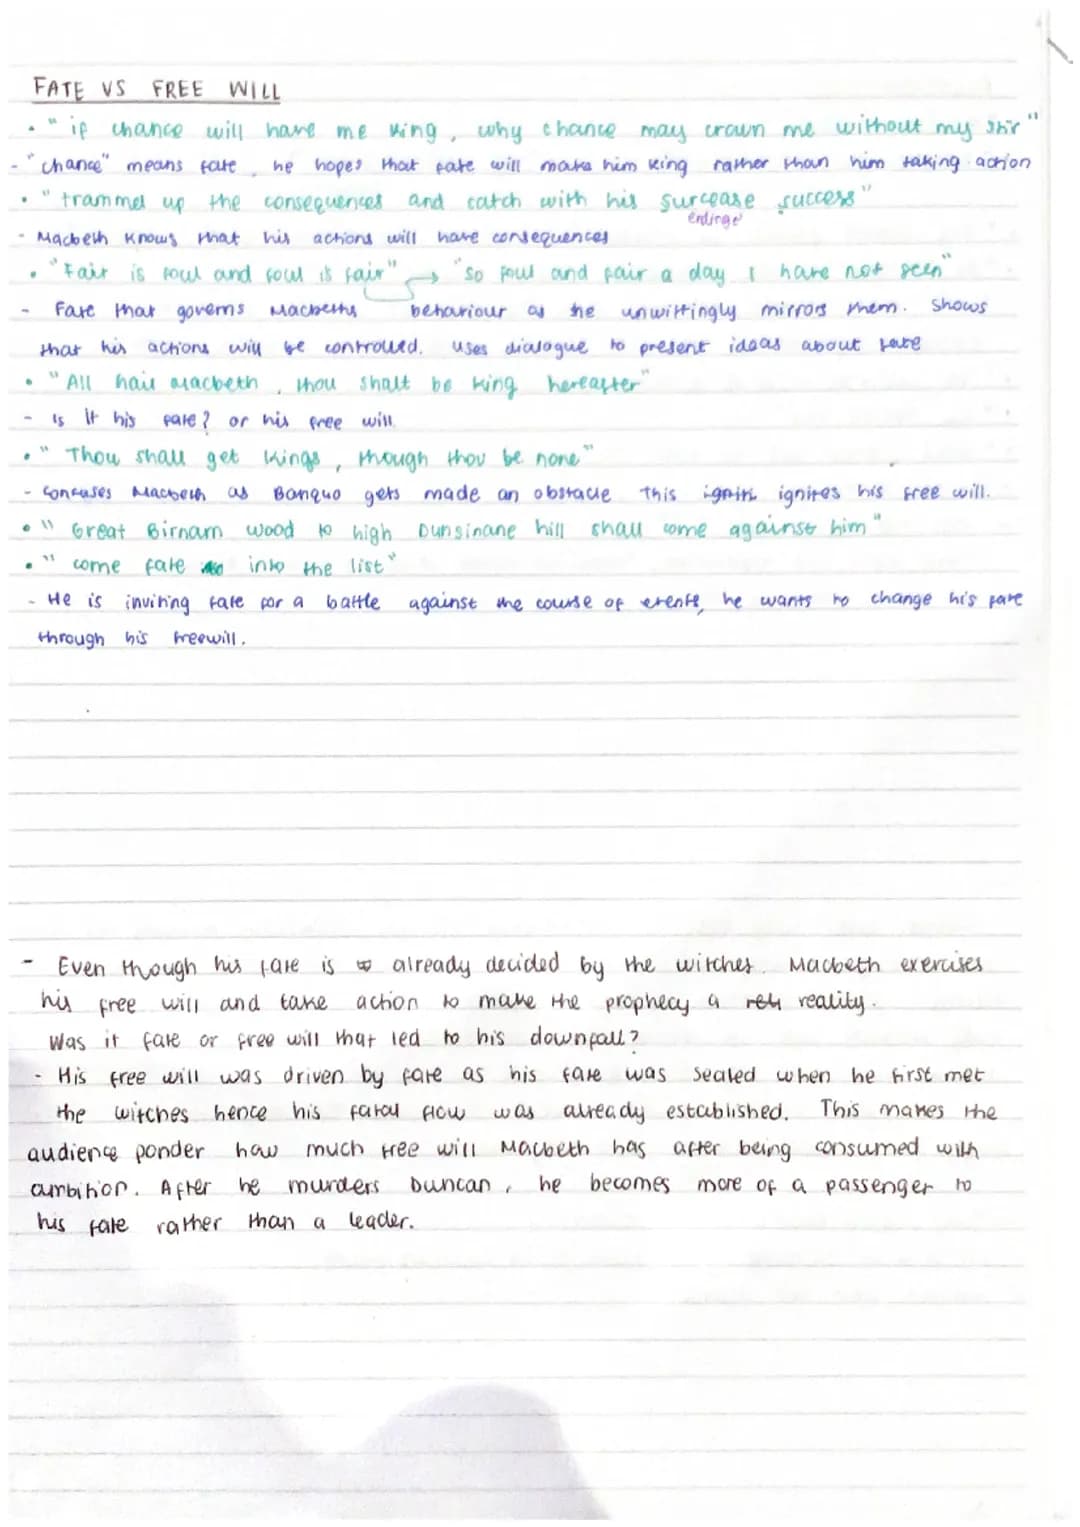 FATE VS FREE WILL
• "if chance will have me king, why chance may crown me without my stir"
- "chance" means fate, he hopes that fate will make him king rather than him taking action
• "trammel up the consequences and catch with his surcease success"
endings
- Macbeth knows that his actions will have consequences
• "Fair is foul and foul is fair" → "So foul and fair a day I have not seen"
- Fate that governs Macbeths behaviour as he unwittingly mirrors them. Shows
that his actions will be controlled. uses dialogue to present ideas about fate
• "All hail Macbeth, thou shalt be king hereafter"
- Is it his fate? or his free will.
• "Thou shall get kings, though thou be none"
- Confuses Macbeth as Banquo gets made an obstacle This ignites his free will.
• "Great Birnam wood to high Dunsinane hill shall come against him"
• "come fate into the list"
- He is inviting fate for a battle against the course of events, he wants to change his fate
through his freewill.
- Even though his fate is already decided by the witches. Macbeth exercises
his free will and take action to make the prophecy a reality.
Was it fate or free will that led to his downfall?
- His free will was driven by fate as his fate was sealed when he first met
the witches hence his fatal flaw was already established. This makes the
audience ponder how much free will Macbeth has after being consumed with
ambition. After he murders Duncan, he becomes more of a passenger to
his fate rather than a leader.